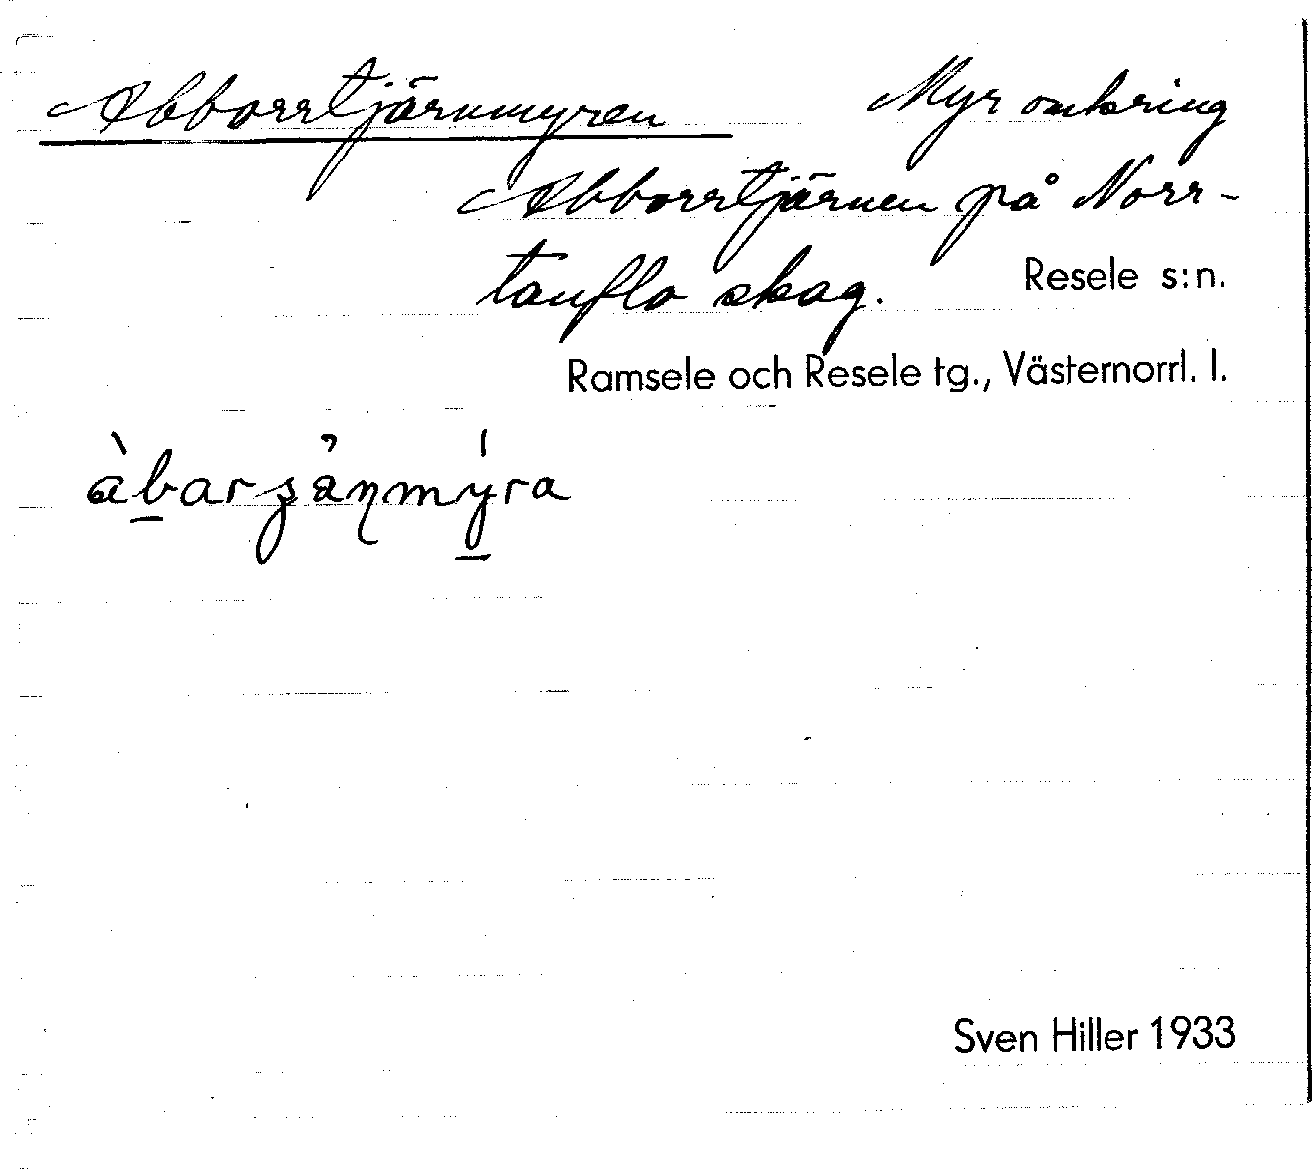 Abborrtjärnmyren Myr omkring
Abborrtjärnen på Norr-
tanflo skog.
Resele s:n.
Ramsele och Resele tg., Västernorrl. l.
Sven Hiller 1933